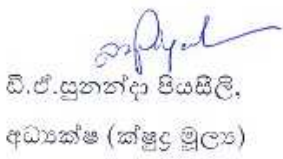 ඩී.ඒ.සුනන්දා පියසීලි,
අධ්‍යක්ෂ (ක්ෂුද්‍ර මූල්‍ය)